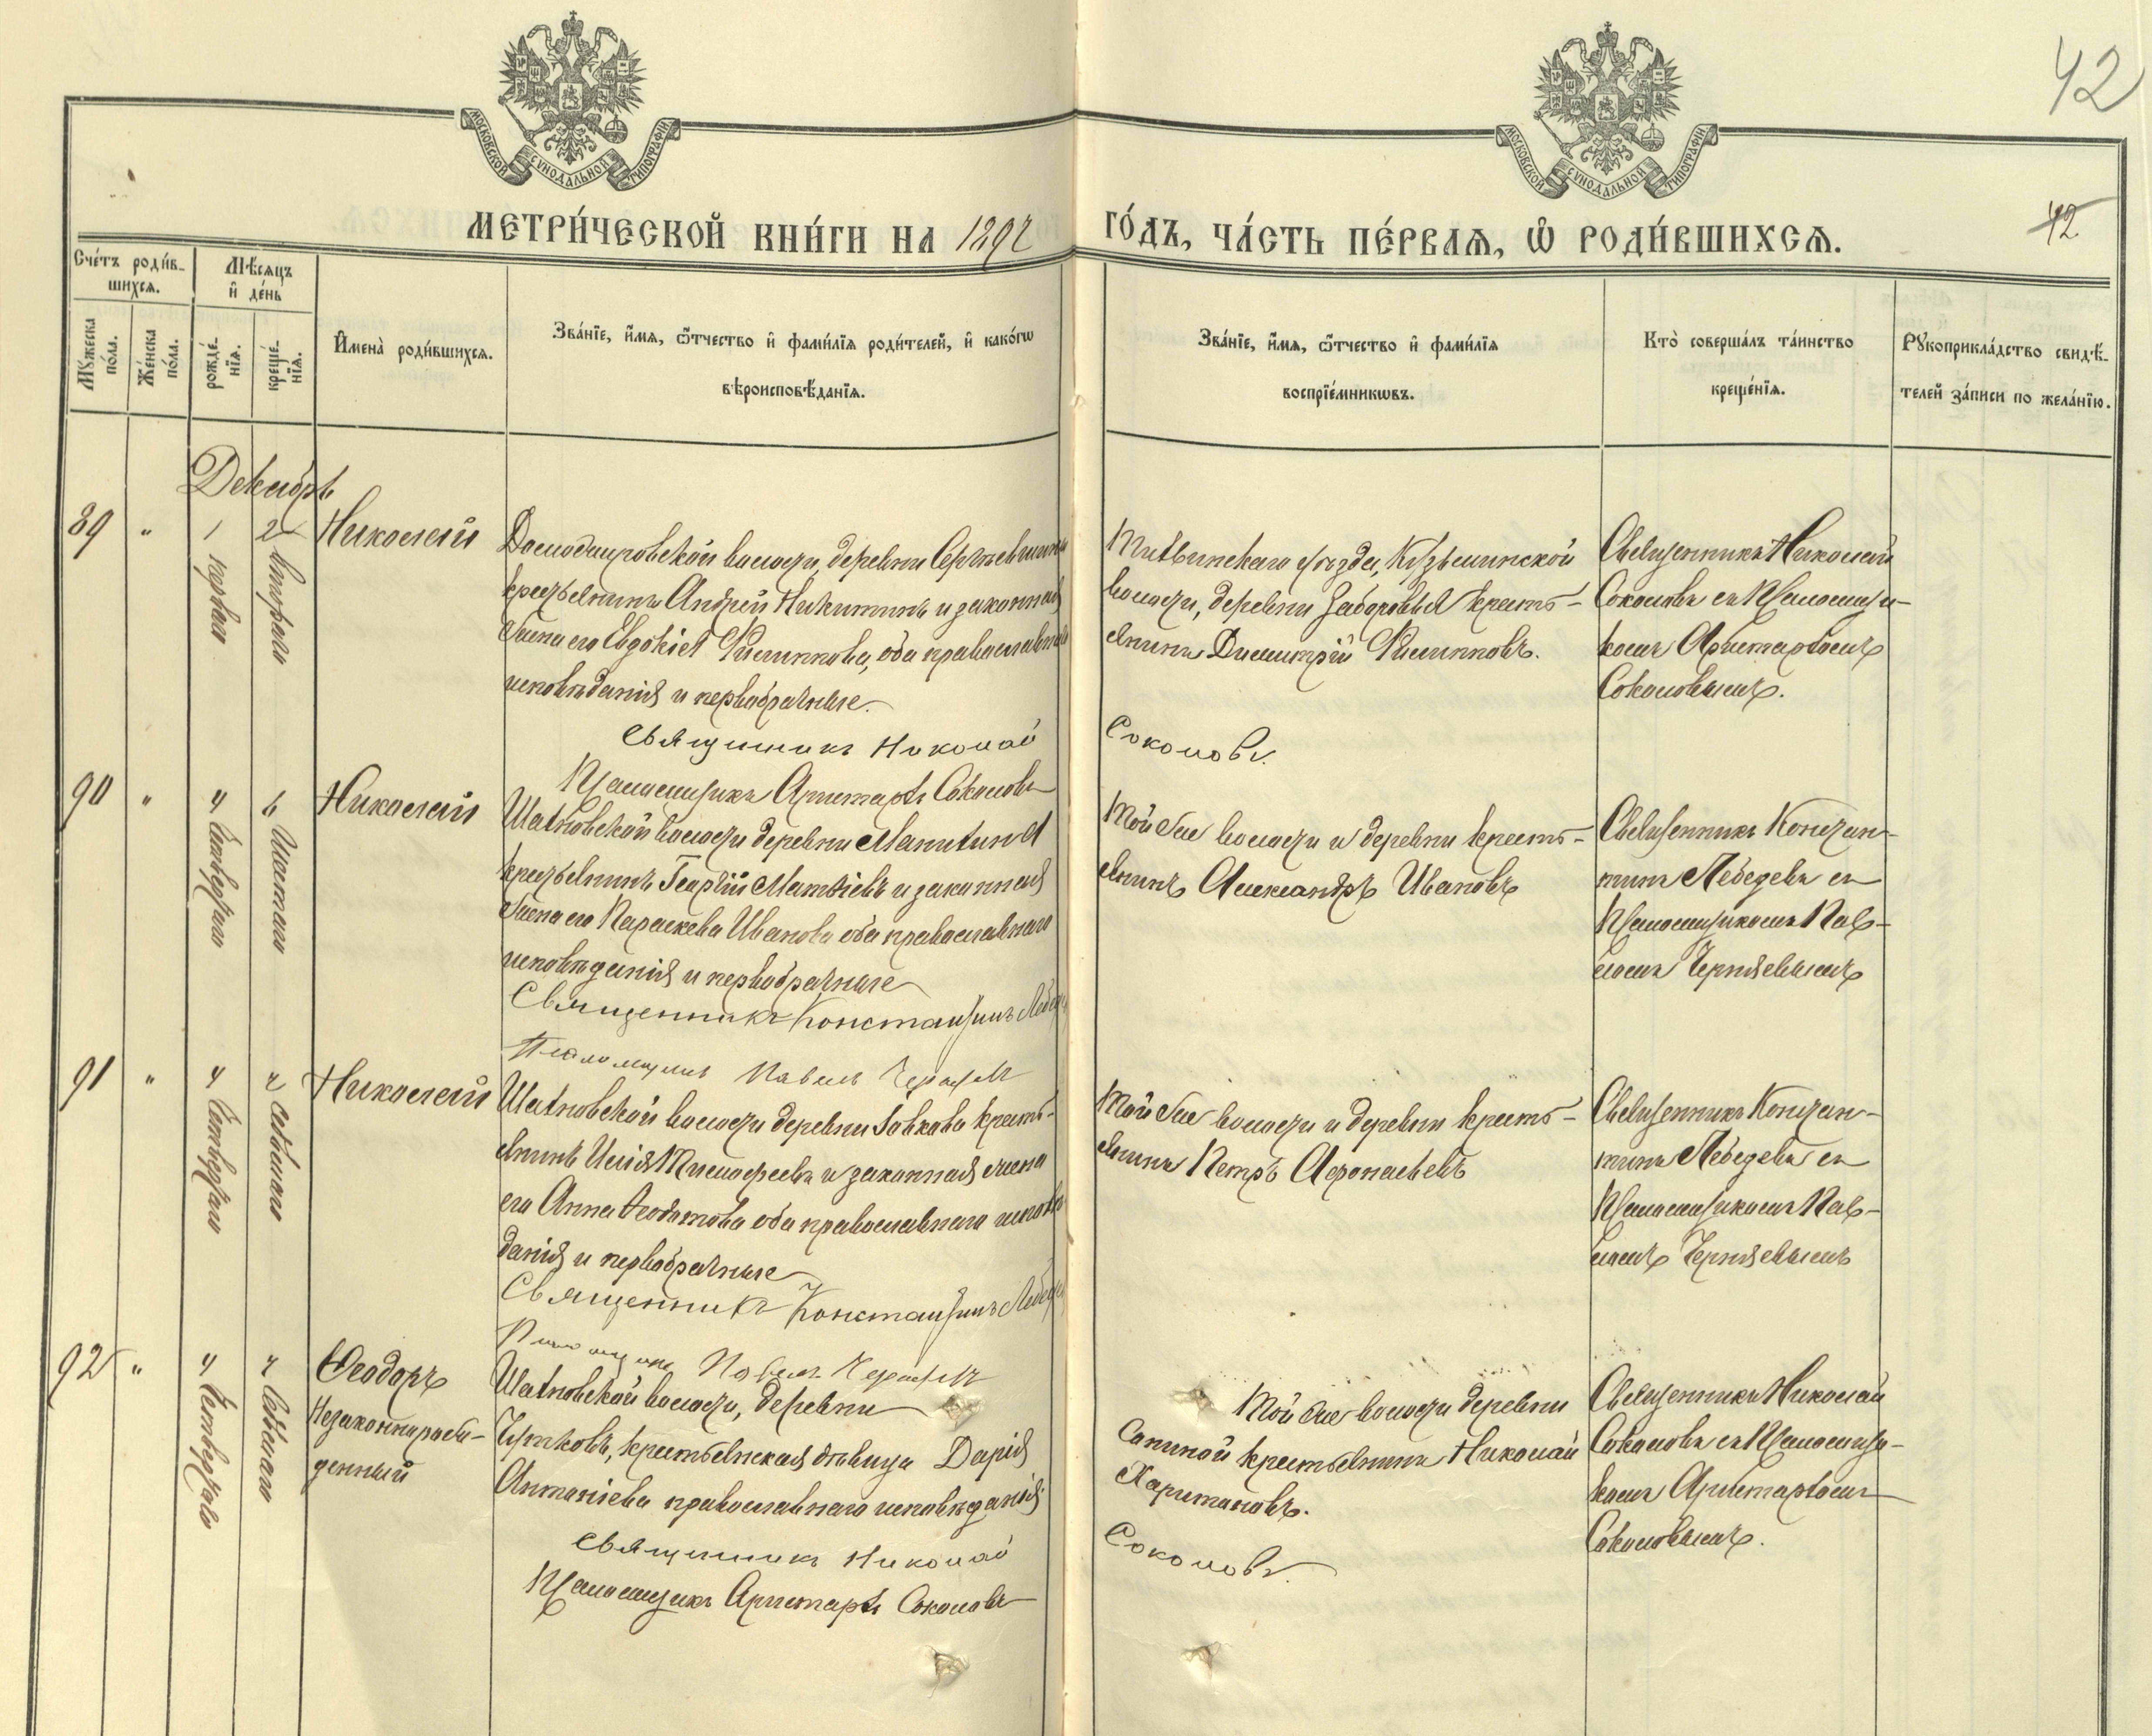 42
МОСКОВСКОЙ СѴНОДАЛЬНОЙ ТИПОГРАФІИ
МОСКОВСКОЙ СѴНОДАЛЬНОЙ ТИПОГРАФІИ
МЕТРИ́ЧЕСКОЙ КНИ́ГИ НА 1892
ГО́ДЪ, ЧА́СТЬ ПЕ́РВАЯ, Ѡ҆ РОДИ́ВШИХСЯ.
42
Сче́тъ роди́в-
шихся.
Мѣ́сяцъ
и҆ де́нь
Мꙋ́жеска
по́ла.
Же́нска
по́ла.
рожде́-
нїя.
креще́-
нїя.
И҆мена̀ роди́вшихся.
Зва́нїе, и҆́мя, ѻ҆́тчество и҆ фами́лїя роди́телей, и҆ како́гѡ
вѣроисповѣ́данїя.
Зва́нїе, и҆́мя, ѻ҆́тчество и҆ фами́лїя
воспрїе́мникѡвъ.
Кто̀ соверша́лъ та́инство
креще́нїя.
Рꙋкоприкла́дство свидѣ́-
телей за́писи по жела́нїю.
Декабрь
89 " 1 перваго 2 втораго Николай
волости, деревни
крестьянинъ Андрей Никитинъ и законная
жена его Евдокія Филиппова, оба православнаго
исповѣданія и первобрачные.
Священникъ Николай
Псаломщикъ Аристархъ Соколовъ
уѣзда, Кузьминской
волости, деревни Заборовья кресть-
янинъ Димитрій Филипповъ.
Соколовъ.
Священникъ Николай
Соколовъ съ Псаломщи-
комъ Аристархомъ
Соколовымъ.
90 " 4 Четвертаго 6 Шестаго Николай
волости деревни
крестьянинъ Георгій Матвіевъ и законная
жена его Параскева Иванова оба православнаго
исповѣданія и первобрачные
Священникъ Константинъ Лебедевъ
Псаломщикъ Павелъ
Той же волости и деревни кресть-
янинъ Александръ Ивановъ
Священникъ Констан-
тинъ Лебедевъ съ
Псаломщикомъ Пав-
ломъ Черняевымъ
91 " 4 Четвертаго 7 Седьмаго Николай
волости деревни кресть-
янинъ Илія Тимофеевъ и законная жена
его Анна оба православнаго исповѣ-
данія и первобрачные
Священникъ Константинъ Лебедевъ
Псаломщикъ Павелъ
Той же волости и деревни кресть-
янинъ Петръ Афонасьевъ
Священникъ Констан-
тинъ Лебедевъ съ
Псаломщикомъ Пав-
ломъ Черняевымъ
92 " 4 Четвертаго 7 Седьмаго Ѳеодоръ
Незаконнорож-
денный
волости, деревни
крестьянская дѣвица Дарія
Антоніева православнаго исповѣданія
Священникъ Николай
Псаломщикъ Аристархъ Соколовъ
Той же волости деревни
крестьянинъ Николай
Харитоновъ.
Соколовъ.
Священникъ Николай
Соколовъ съ Псаломщи-
комъ Аристархомъ
Соколовымъ.